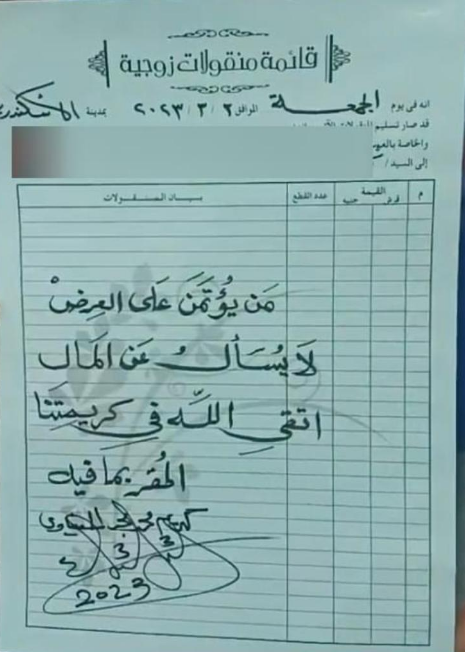 قائمة منقولات زوجية
انه فى يوم الجمعة الموافق ٢ / ٣ / ٢٠٢٣ بمدينة الاسكندرية
قد صار تسليم
والخاصة بالعروس
إلى السيد /
م القيمة عدد القطع بيـــان المـنـــقـــولات
قرش جنيه
مَن يُؤتَمَنَ عَلى العِرضْ
لَا يُسَأل عَن المَال
اتقي اللّه في كريمتَنا
المُقر بما فيه
2023